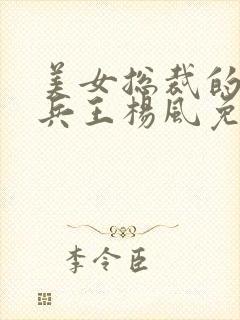 美女总裁的
兵王杨风免
李令臣